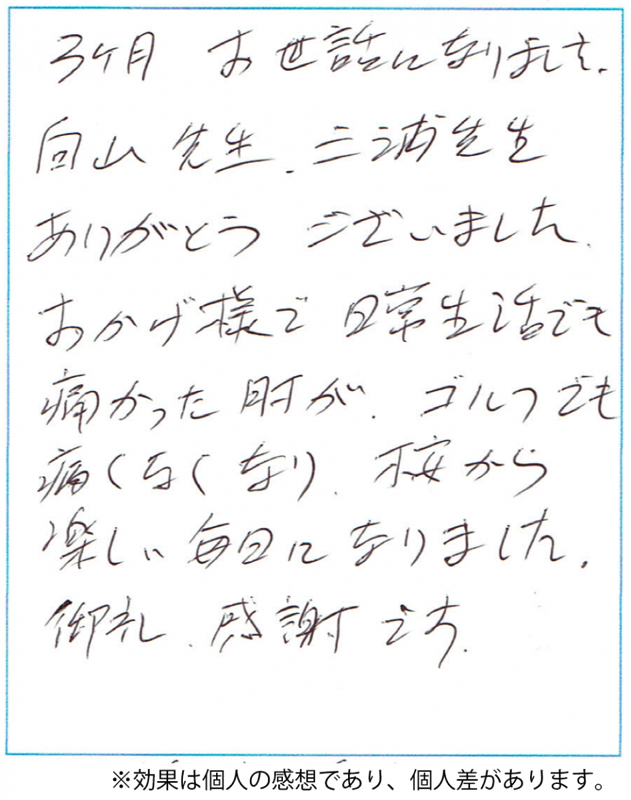 3ケ月 お世話になりまして、
向山先生、三浦先生
ありがとう ございました、
おかげ様で 日常生活でも
痛かった 肘が、ゴルフでも
痛くなくなり、桜から
楽しい毎日になりました。
御礼、感謝です。
※効果は個人の感想であり、個人差があります。